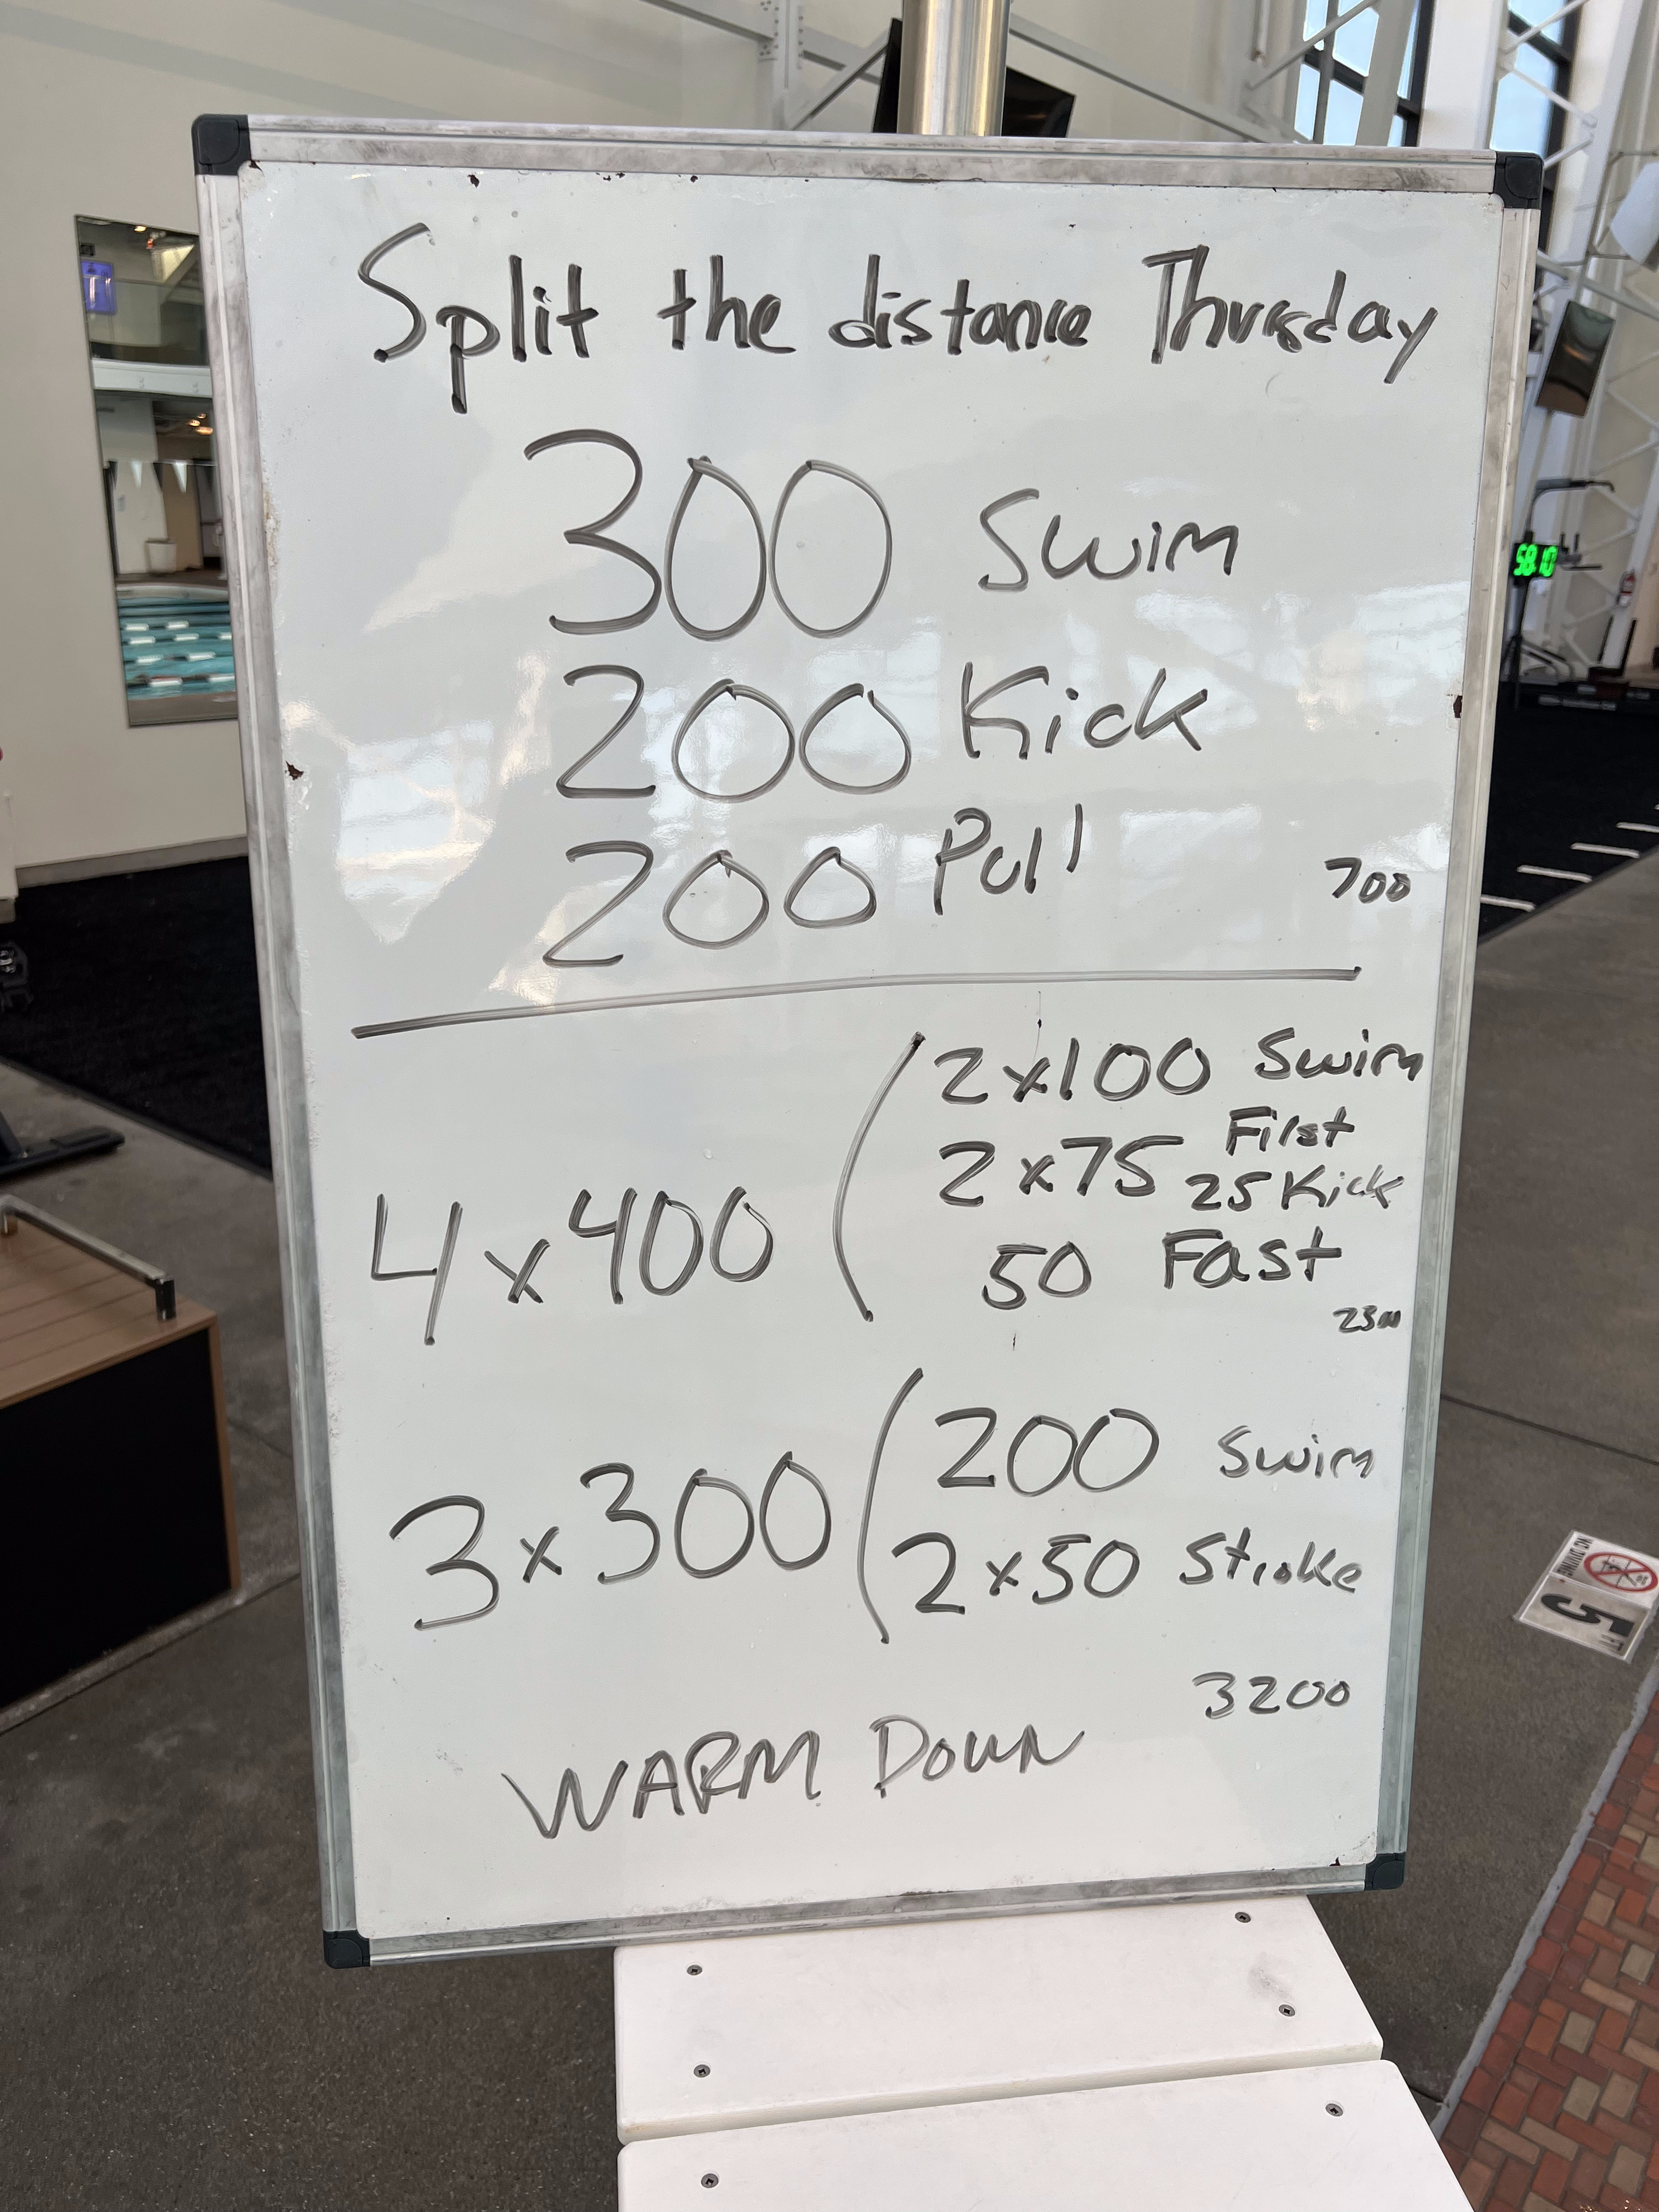 Split the distance Thursday
300 Swim
200 Kick
200 Pull
700
4 x 400
2 x 100 Swim
2 x 75 First 25 Kick
50 Fast
2300
3 x 300
200 Swim
2 x 50 Stroke
3200
WARM DOWN
58:10
NO DIVING
5 FT